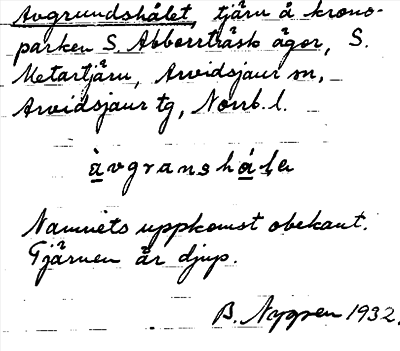 Avgrundshålet, tjärn å krono-
parken S. Abborrträsk ägor, S.
Metartjärn, Arvidsjaur sn,
Arvidsjaur tg, Norrb. l.
àvgranshá
Namnets uppkomst obekant.
Tjärnen är djup.
B. Nygren 1932.